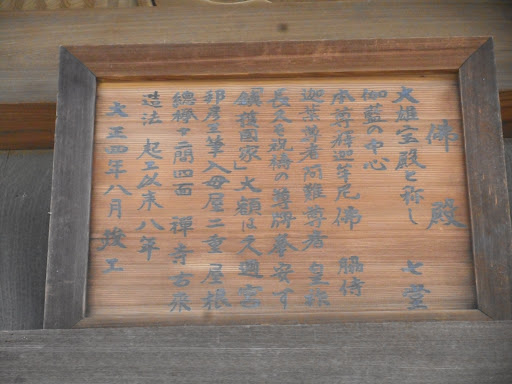 佛殿
大雄宝殿と称し 七堂
伽藍の中心
本尊釋迦牟尼佛 脇侍
迦葉尊者阿難尊者 皇祚
長久を祝祷の尊牌奉安す
「鎮護國家」大額は天廻窟
入母屋二重屋根
総欅十二間四面 禅寺古来
造法 起工以来八年
大正四年八月竣工